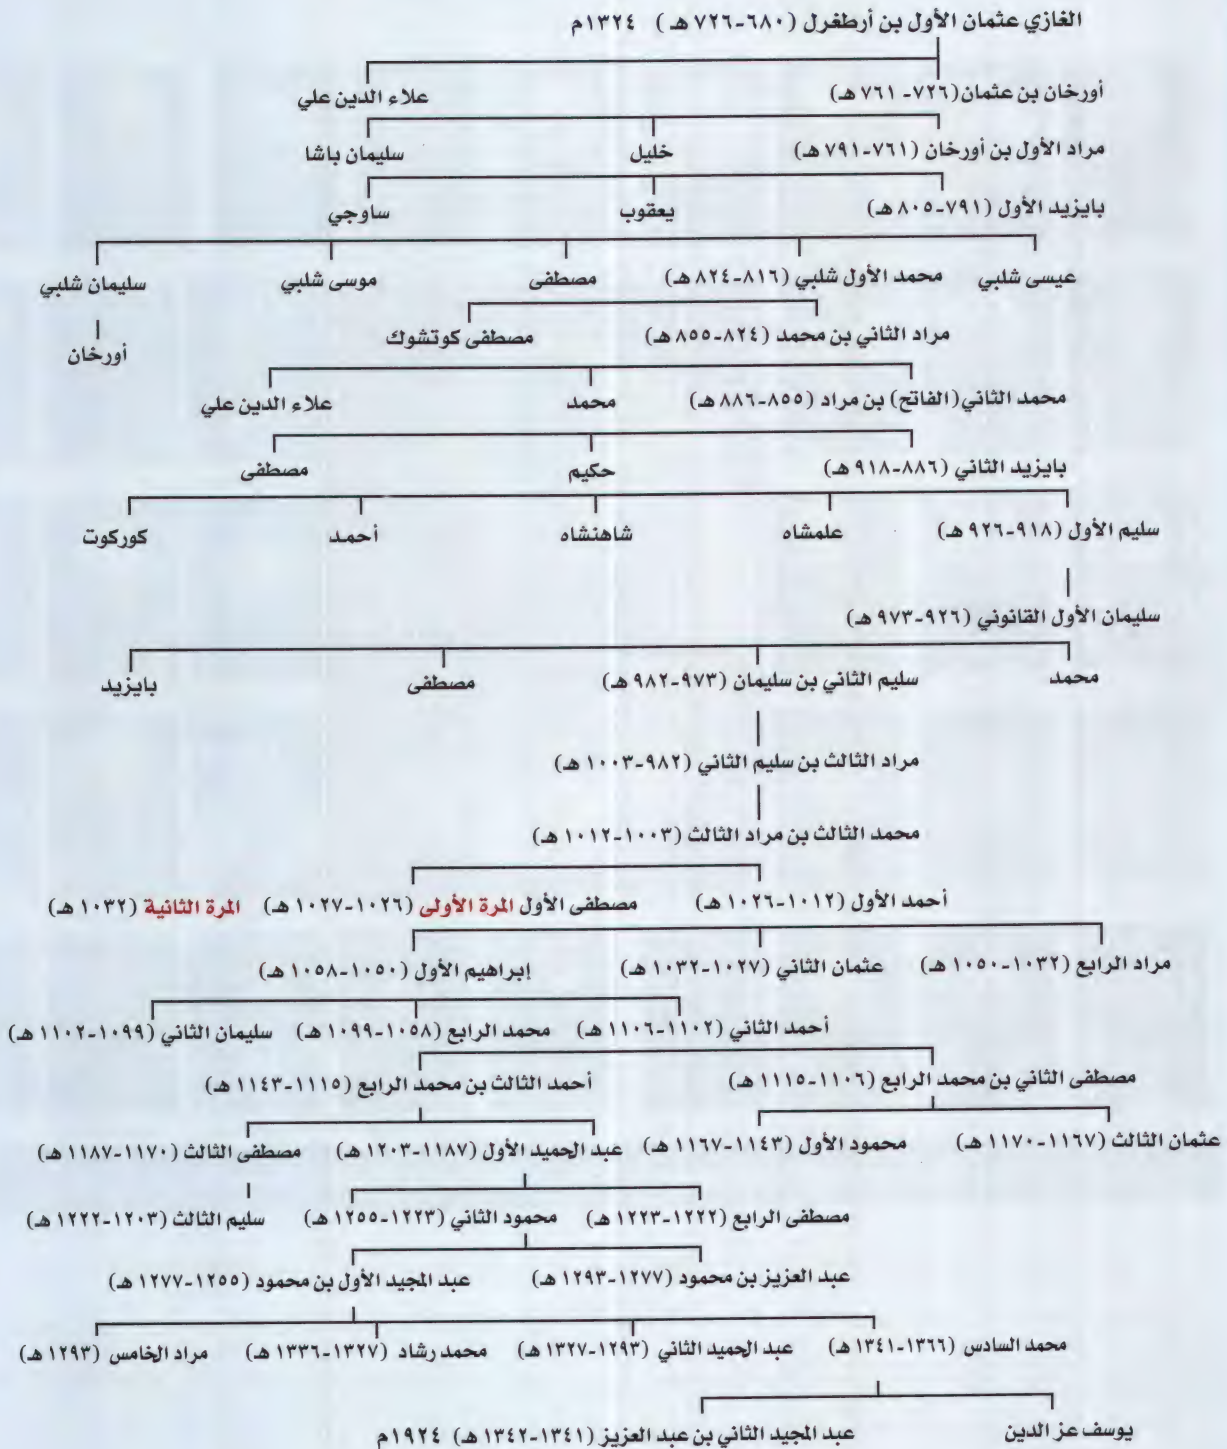 الغازي عثمان الأول بن أرطغرل (٦٨٠-٧٢٦ هـ) ١٣٢٤م
أورخان بن عثمان (٧٢٦- ٧٦١ هـ) علاء الدين علي
مراد الأول بن أورخان (٧٦١-٧٩١ هـ) خليل سليمان باشا
بايزيد الأول (٧٩١-٨٠٥ هـ) يعقوب ساوجي
عيسى شلبي محمد الأول شلبي (٨١٦-٨٢٤ هـ) مصطفى موسى شلبي سليمان شلبي
مراد الثاني بن محمد (٨٢٤-٨٥٥ هـ) مصطفى كوتشوك أورخان
محمد الثاني (الفاتح) بن مراد (٨٥٥-٨٨٦ هـ) محمد علاء الدين علي
بايزيد الثاني (٨٨٦-٩١٨ هـ) حكيم مصطفى
سليم الأول (٩١٨-٩٢٦ هـ) علمشاه شاهنشاه أحمد كوركوت
سليمان الأول القانوني (٩٢٦-٩٧٣ هـ)
محمد سليم الثاني بن سليمان (٩٧٣-٩٨٢ هـ) مصطفى بايزيد
مراد الثالث بن سليم الثاني (٩٨٢-١٠٠٣ هـ)
محمد الثالث بن مراد الثالث (١٠٠٣-١٠١٢ هـ)
أحمد الأول (١٠١٢-١٠٢٦ هـ) مصطفى الأول المرة الأولى (١٠٢٦-١٠٢٧ هـ) المرة الثانية (١٠٣٢ هـ)
مراد الرابع (١٠٣٢-١٠٥٠ هـ) عثمان الثاني (١٠٢٧-١٠٣٢ هـ) إبراهيم الأول (١٠٥٠-١٠٥٨ هـ)
أحمد الثاني (١١٠٢-١١٠٦ هـ) محمد الرابع (١٠٥٨-١٠٩٩ هـ) سليمان الثاني (١٠٩٩-١١٠٢ هـ)
مصطفى الثاني بن محمد الرابع (١١٠٦-١١١٥ هـ) أحمد الثالث بن محمد الرابع (١١١٥-١١٤٣ هـ)
عثمان الثالث (١١٦٧-١١٧٠ هـ) محمود الأول (١١٤٣-١١٦٧ هـ) عبد الحميد الأول (١١٨٧-١٢٠٣ هـ) مصطفى الثالث (١١٧٠-١١٨٧ هـ)
مصطفى الرابع (١٢٢٢-١٢٢٣ هـ) محمود الثاني (١٢٢٣-١٢٥٥ هـ) سليم الثالث (١٢٠٣-١٢٢٢ هـ)
عبد العزيز بن محمود (١٢٧٧-١٢٩٣ هـ) عبد المجيد الأول بن محمود (١٢٥٥-١٢٧٧ هـ)
محمد السادس (١٣٦٦-١٣٤١ هـ) عبد الحميد الثاني (١٢٩٣-١٣٢٧ هـ) محمد رشاد (١٣٢٧-١٣٣٦ هـ) مراد الخامس (١٢٩٣ هـ)
يوسف عز الدين عبد المجيد الثاني بن عبد العزيز (١٣٤١-١٣٤٢ هـ) ١٩٢٤م